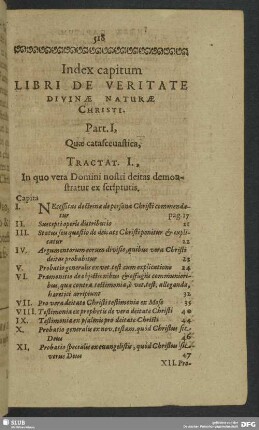 518
Index capitum
LIBRI DE VERITATE
DIVINÆ NATURÆ
CHRISTI.
Part. I,
Quæ catasceuastica,
TRACTAT. I.,
In quo vera Domini nostri deitas demon-
stratur ex scripturis,
Capita
I. NEcessitas doctrinæ de persona Christi commenda-
tur pag. 17
II. Suscepti operis distributio 21
III. Status seu quæstio de deitate Christi ponitur & expli-
catur 22
IV. Argumentorum coronidis, quibus vera Christi
deitas probabitur 23
V. Probatio generalis ex vet. test. cum explicatione 24
VI. Præmonitio de objectionibus & effugiis communiori-
bus, qua contra testimonia, è vet. test. alleganda,
hæretici arripiunt 32
VII. Pro vera deitate Christi testimonia ex Mose 35
VIII. Testimonia ex prophetis de vera deitate Christi 40
IX. Testimonia ex psalmis pro deitate Christi 44
X. Probatio generalis ex nov. testam. quid Christus sit
Deus 46
XI. Probatio specialis ex evangelistis, quid Christus sit
verus Deus 47
XII. Pro-
SLUB
DFG